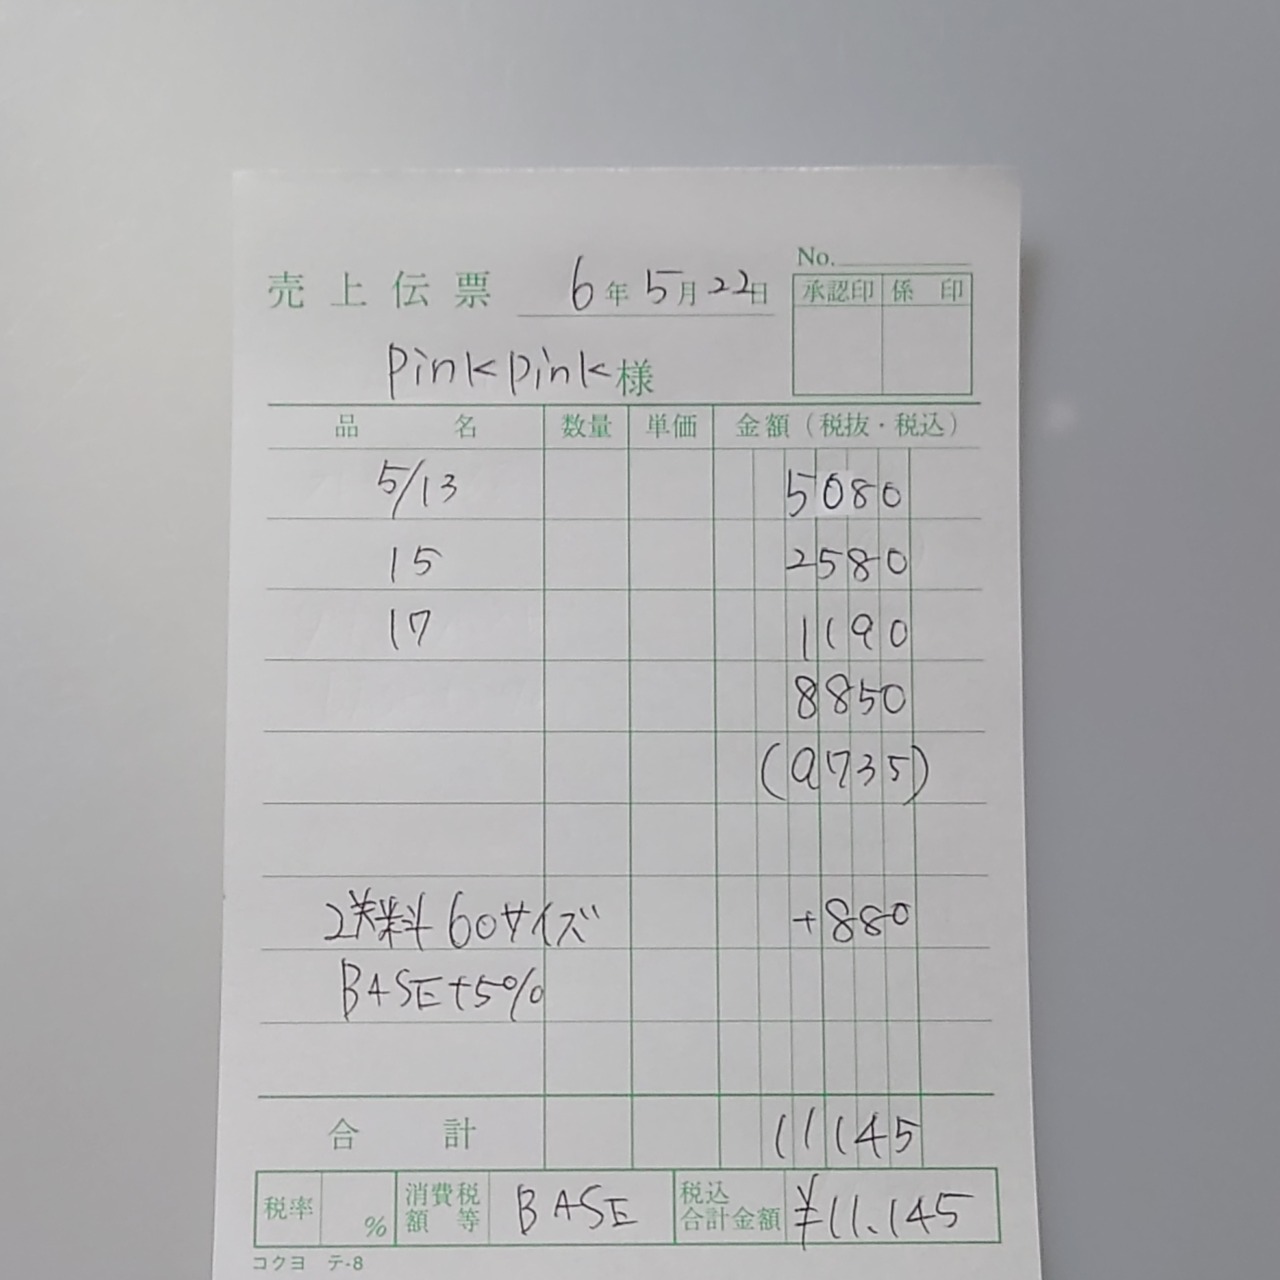 No.
売上伝票 6年5月22日
承認印 係印
pinkpink様
品名 数量 単価 金額(税抜・税込)
5/13 5080
15 2580
17 1190
8850
(9735)
送料60サイズ +880
BASE+5%
合計 11145
税率 % 消費税額等 BASE 税込合計金額 ¥11.145
コクヨ テ-8